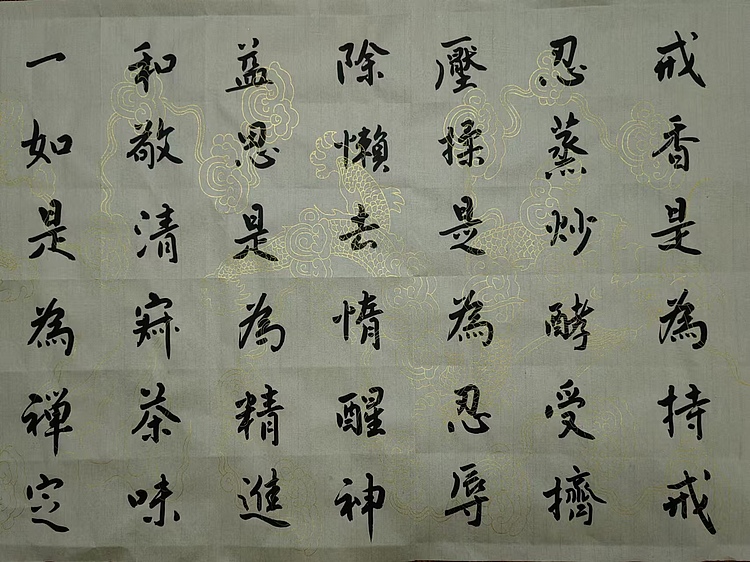 戒香是為持戒
忍蒸炒酵受擠
壓揉是為忍辱
除懶去惰醒神
益思是為精進
和敬清寂茶味
一如是為禪定